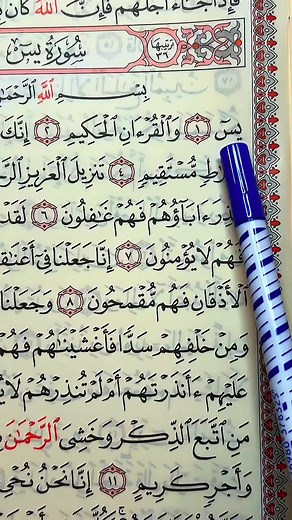 فإذا جاء أجلهم فإن الله كان
سُورَةُ يسٓ ترتيبها ٣٦
بِسْمِ ٱللَّهِ ٱلرَّحْمَٰ
يسٓ ١ وَٱلْقُرْءَانِ ٱلْحَكِيمِ ٢ إِنَّكَ
رَٰطٍ مُّسْتَقِيمٍ ٤ تَنزِيلَ ٱلْعَزِيزِ ٱلرَّ
ذِرَ ءَابَآؤُهُمْ فَهُمْ غَٰفِلُونَ ٦ لَقَدْ
فَهُمْ لَا يُؤْمِنُونَ ٧ إِنَّا جَعَلْنَا فِىٓ أَعْنَٰقِ
ٱلْأَذْقَانِ فَهُم مُّقْمَحُونَ ٨ وَجَعَلْنَا
وَمِنْ خَلْفِهِمْ سَدًّا فَأَغْشَيْنَٰهُمْ فَهُمْ
عَلَيْهِمْ ءَأَنذَرْتَهُمْ أَمْ لَمْ تُنذِرْهُمْ لَا
مَنِ ٱتَّبَعَ ٱلذِّكْرَ وَخَشِىَ ٱلرَّحْمَٰنَ
وَأَجْرٍ كَرِيمٍ ١١ إِنَّا نَحْنُ نُحْىِ